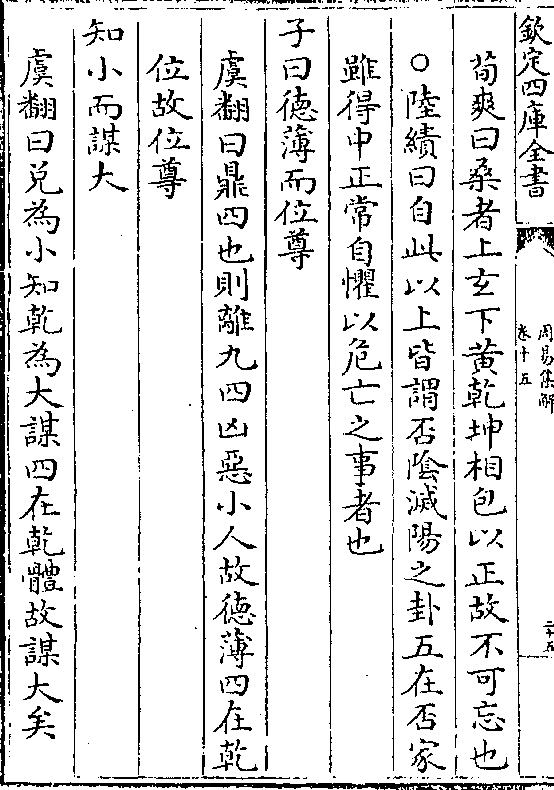 欽定四庫全書
周易集解
卷十五
二十五
荀爽曰桑者上玄下黄乾坤相包以正故不可忘也
○陸績曰自此以上皆謂否隂滅陽之卦五在否家
雖得中正常自懼以危亡之事者也
子曰德薄而位尊
虞翻曰鼎四也則離九四凶惡小人故德薄四在乾
位故位尊
知小而謀大
虞翻曰兑為小知乾為大謀四在乾體故謀大矣